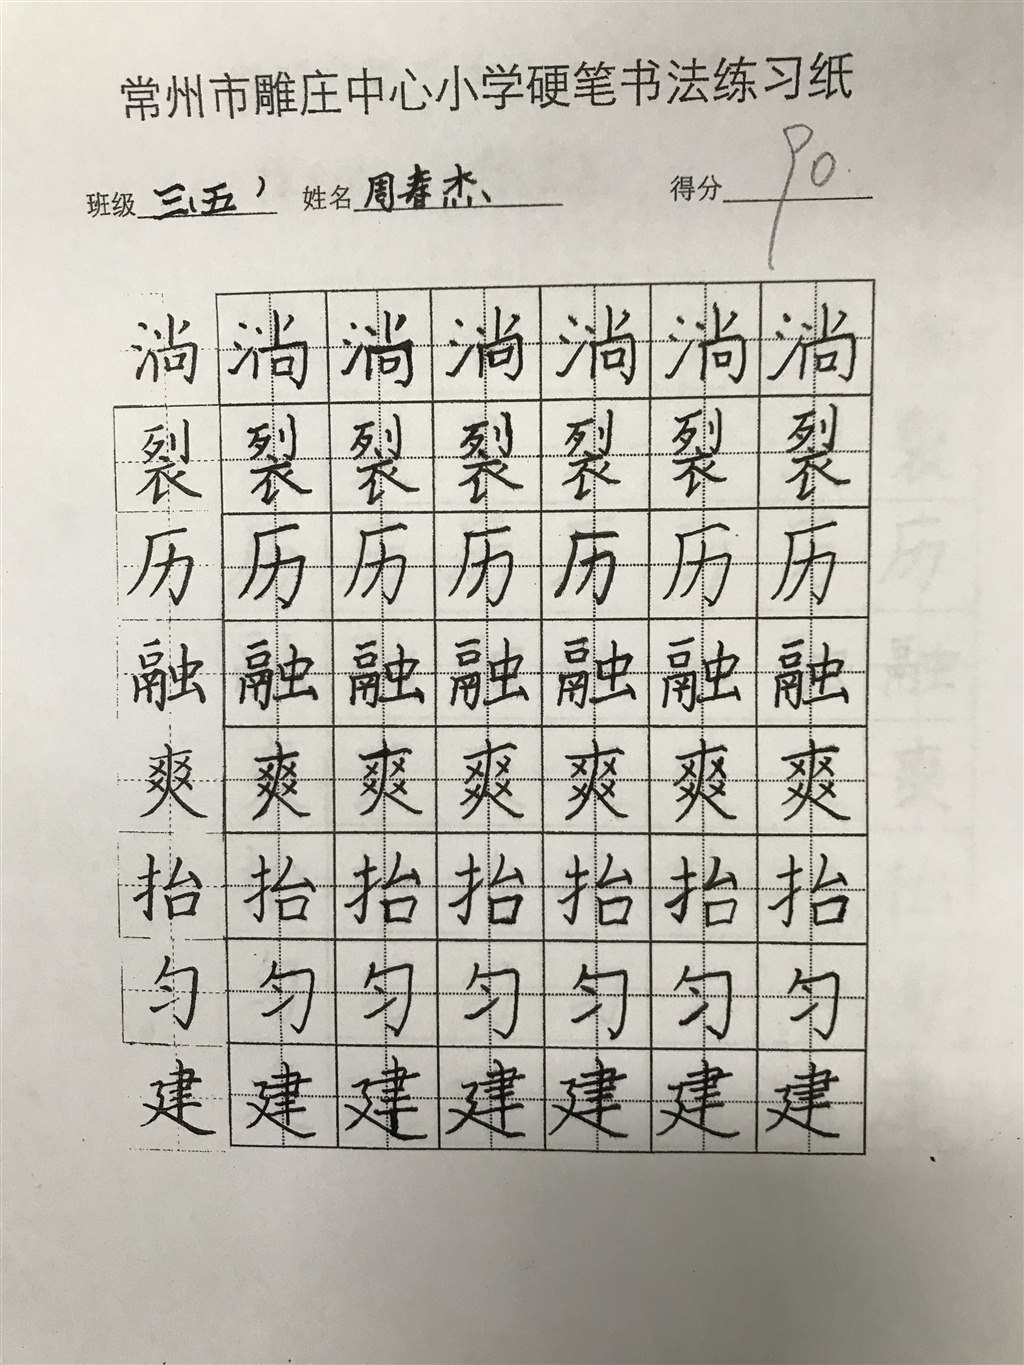 常州市雕庄中心小学硬笔书法练习纸
班级 三、五 姓名 周春杰、 得分 90.
淌 淌 淌 淌 淌 淌 淌
裂 裂 裂 裂 裂 裂 裂
历 历 历 历 历 历 历
融 融 融 融 融 融 融
爽 爽 爽 爽 爽 爽 爽
抬 抬 抬 抬 抬 抬 抬
匀 匀 匀 匀 匀 匀 匀
建 建 建 建 建 建 建